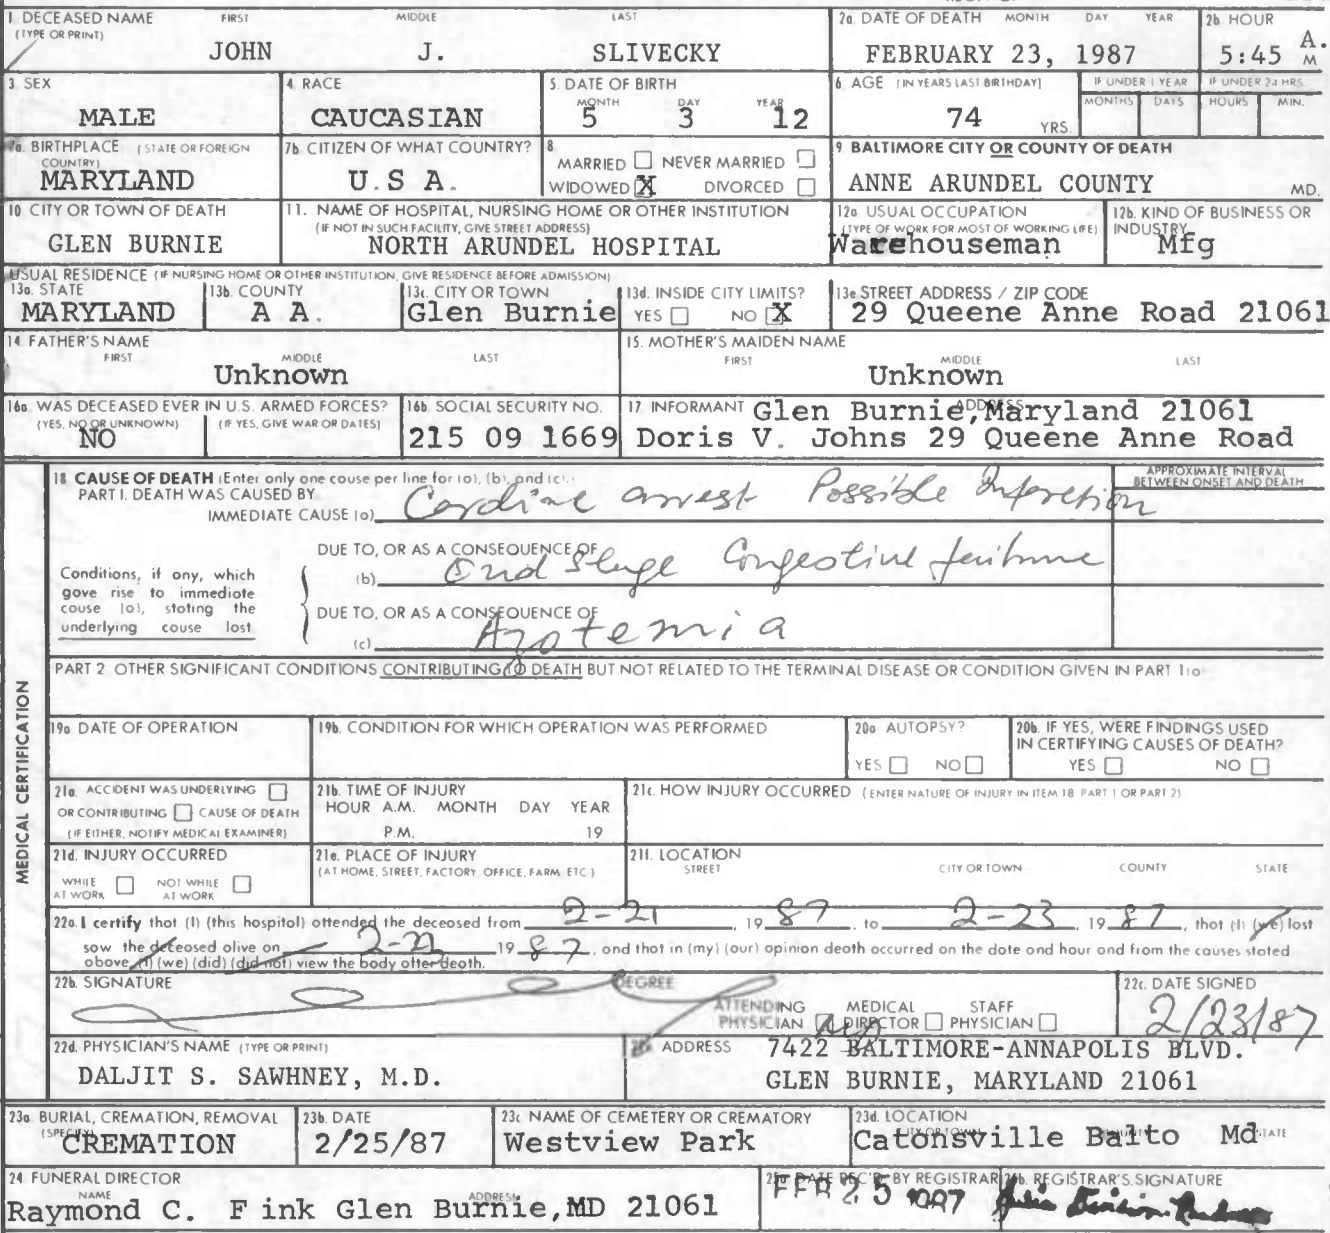 1 DECEASED NAME FIRST MIDDLE LAST
(TYPE OR PRINT)
JOHN J. SLIVECKY
2a DATE OF DEATH MONTH DAY YEAR
FEBRUARY 23, 1987
2b HOUR
5:45 A.M
3 SEX
MALE
4 RACE
CAUCASIAN
5. DATE OF BIRTH
MONTH DAY YEAR
5 3 12
6 AGE (IN YEARS LAST BIRTHDAY)
74 YRS.
IF UNDER 1 YEAR
MONTHS DAYS
IF UNDER 24 HRS.
HOURS MIN.
7a. BIRTHPLACE (STATE OR FOREIGN
COUNTRY)
MARYLAND
7b CITIZEN OF WHAT COUNTRY?
U.S A.
8
MARRIED NEVER MARRIED
WIDOWED X DIVORCED
9 BALTIMORE CITY OR COUNTY OF DEATH
ANNE ARUNDEL COUNTY MD.
10 CITY OR TOWN OF DEATH
GLEN BURNIE
11. NAME OF HOSPITAL, NURSING HOME OR OTHER INSTITUTION
(IF NOT IN SUCH FACILITY, GIVE STREET ADDRESS)
NORTH ARUNDEL HOSPITAL
12a USUAL OCCUPATION
(TYPE OF WORK FOR MOST OF WORKING LIFE)
Warehouseman
12b. KIND OF BUSINESS OR
INDUSTRY
Mfg
USUAL RESIDENCE (IF NURSING HOME OR OTHER INSTITUTION, GIVE RESIDENCE BEFORE ADMISSION)
13a. STATE
MARYLAND
13b. COUNTY
A A.
13c. CITY OR TOWN
Glen Burnie
13d. INSIDE CITY LIMITS?
YES NO X
13e STREET ADDRESS / ZIP CODE
29 Queene Anne Road 21061
14 FATHER'S NAME
FIRST MIDDLE LAST
Unknown
15. MOTHER'S MAIDEN NAME
FIRST MIDDLE LAST
Unknown
16a WAS DECEASED EVER IN U.S. ARMED FORCES?
(YES, NO OR UNKNOWN) (IF YES, GIVE WAR OR DATES)
NO
16b SOCIAL SECURITY NO.
215 09 1669
17 INFORMANT ADDRESS
Glen Burnie, Maryland 21061
Doris V. Johns 29 Queene Anne Road
MEDICAL CERTIFICATION
18 CAUSE OF DEATH (Enter only one cause per line for (a), (b), and (c).)
PART I. DEATH WAS CAUSED BY
IMMEDIATE CAUSE (a) Cardiac arrest Possible Infarction
APPROXIMATE INTERVAL
BETWEEN ONSET AND DEATH
Conditions, if any, which
gave rise to immediate
cause (a), stating the
underlying cause last
DUE TO, OR AS A CONSEQUENCE OF
(b) End Stage Congestive failure
DUE TO, OR AS A CONSEQUENCE OF
(c) Azotemia
PART 2 OTHER SIGNIFICANT CONDITIONS CONTRIBUTING TO DEATH BUT NOT RELATED TO THE TERMINAL DISEASE OR CONDITION GIVEN IN PART 1(a)
19a DATE OF OPERATION
19b. CONDITION FOR WHICH OPERATION WAS PERFORMED
20a AUTOPSY?
YES NO
20b. IF YES, WERE FINDINGS USED
IN CERTIFYING CAUSES OF DEATH?
YES NO
21a. ACCIDENT WAS UNDERLYING
OR CONTRIBUTING CAUSE OF DEATH
(IF EITHER, NOTIFY MEDICAL EXAMINER)
21b. TIME OF INJURY
HOUR A.M. MONTH DAY YEAR
P.M. 19
21c. HOW INJURY OCCURRED (ENTER NATURE OF INJURY IN ITEM 18 PART 1 OR PART 2)
21d. INJURY OCCURRED
WHILE AT WORK NOT WHILE AT WORK
21e. PLACE OF INJURY
(AT HOME, STREET, FACTORY, OFFICE, FARM, ETC.)
21f. LOCATION
STREET CITY OR TOWN COUNTY STATE
22a. I certify that (I) (this hospital) attended the deceased from 2-21, 1987, to 2-23, 1987, that (I) (we) last
saw the deceased alive on 2-22 1987, and that in (my) (our) opinion death occurred on the date and hour and from the causes stated
above, (I) (we) (did) (did not) view the body after death.
22b. SIGNATURE
DEGREE
ATTENDING PHYSICIAN MEDICAL DIRECTOR STAFF PHYSICIAN
22c. DATE SIGNED
2/23/87
22d. PHYSICIAN'S NAME (TYPE OR PRINT)
DALJIT S. SAWHNEY, M.D.
ADDRESS
7422 BALTIMORE-ANNAPOLIS BLVD.
GLEN BURNIE, MARYLAND 21061
23a BURIAL, CREMATION, REMOVAL
(SPECIFY)
CREMATION
23b. DATE
2/25/87
23c NAME OF CEMETERY OR CREMATORY
Westview Park
23d. LOCATION
CITY OR TOWN STATE
Catonsville Balto Md
24 FUNERAL DIRECTOR
NAME ADDRESS
Raymond C. F ink Glen Burnie, MD 21061
25a DATE REC'D. BY REGISTRAR
FEB 25 1987
25b. REGISTRAR'S SIGNATURE